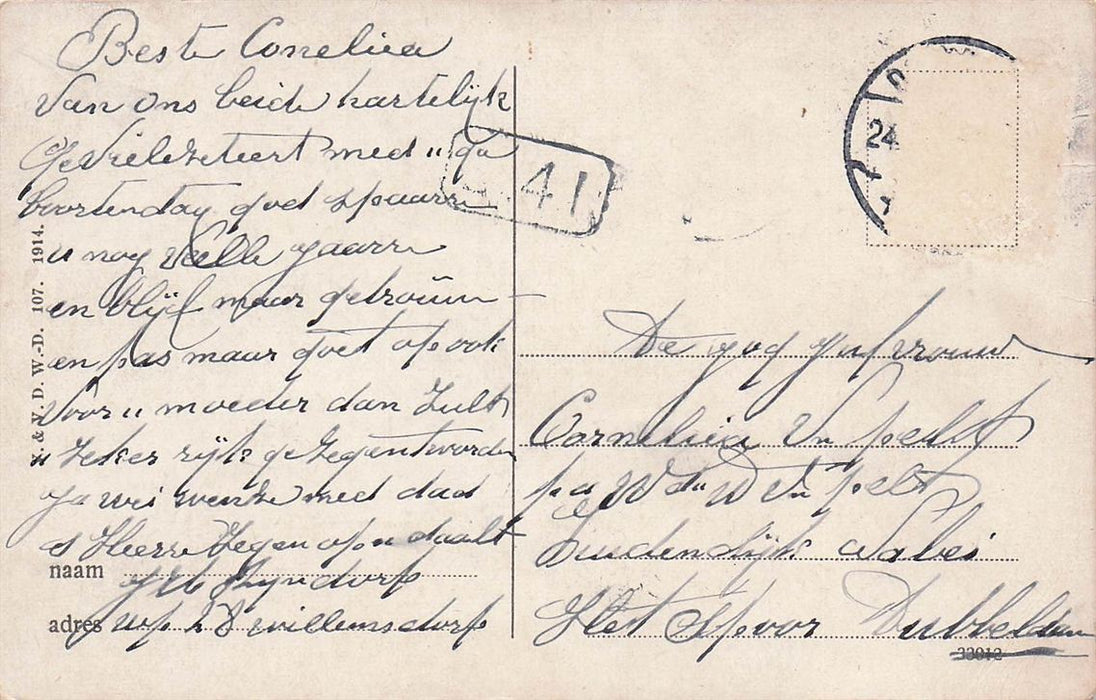 Beste Cornelia
Van ons beide hartelijk
gevielesteert med u ga
boortendag god spaarre
u nog velle jaarre
en blijf maar getrouw
en pas maar goet op ook
voor u moeder dan zult
u zeker rijk gezegent worden
ja wei wense med dad
s Heere zegen op u daalt
naam
adres wp 28 willemsdorp
X. & V. D. W.-D. 107. 1914.
41
24
De jog jufvrouw
Cornelia Vn pelt
pa Wd u W Vn pelt
Zuidendijk
Het Spoor Dubbeldam
33012